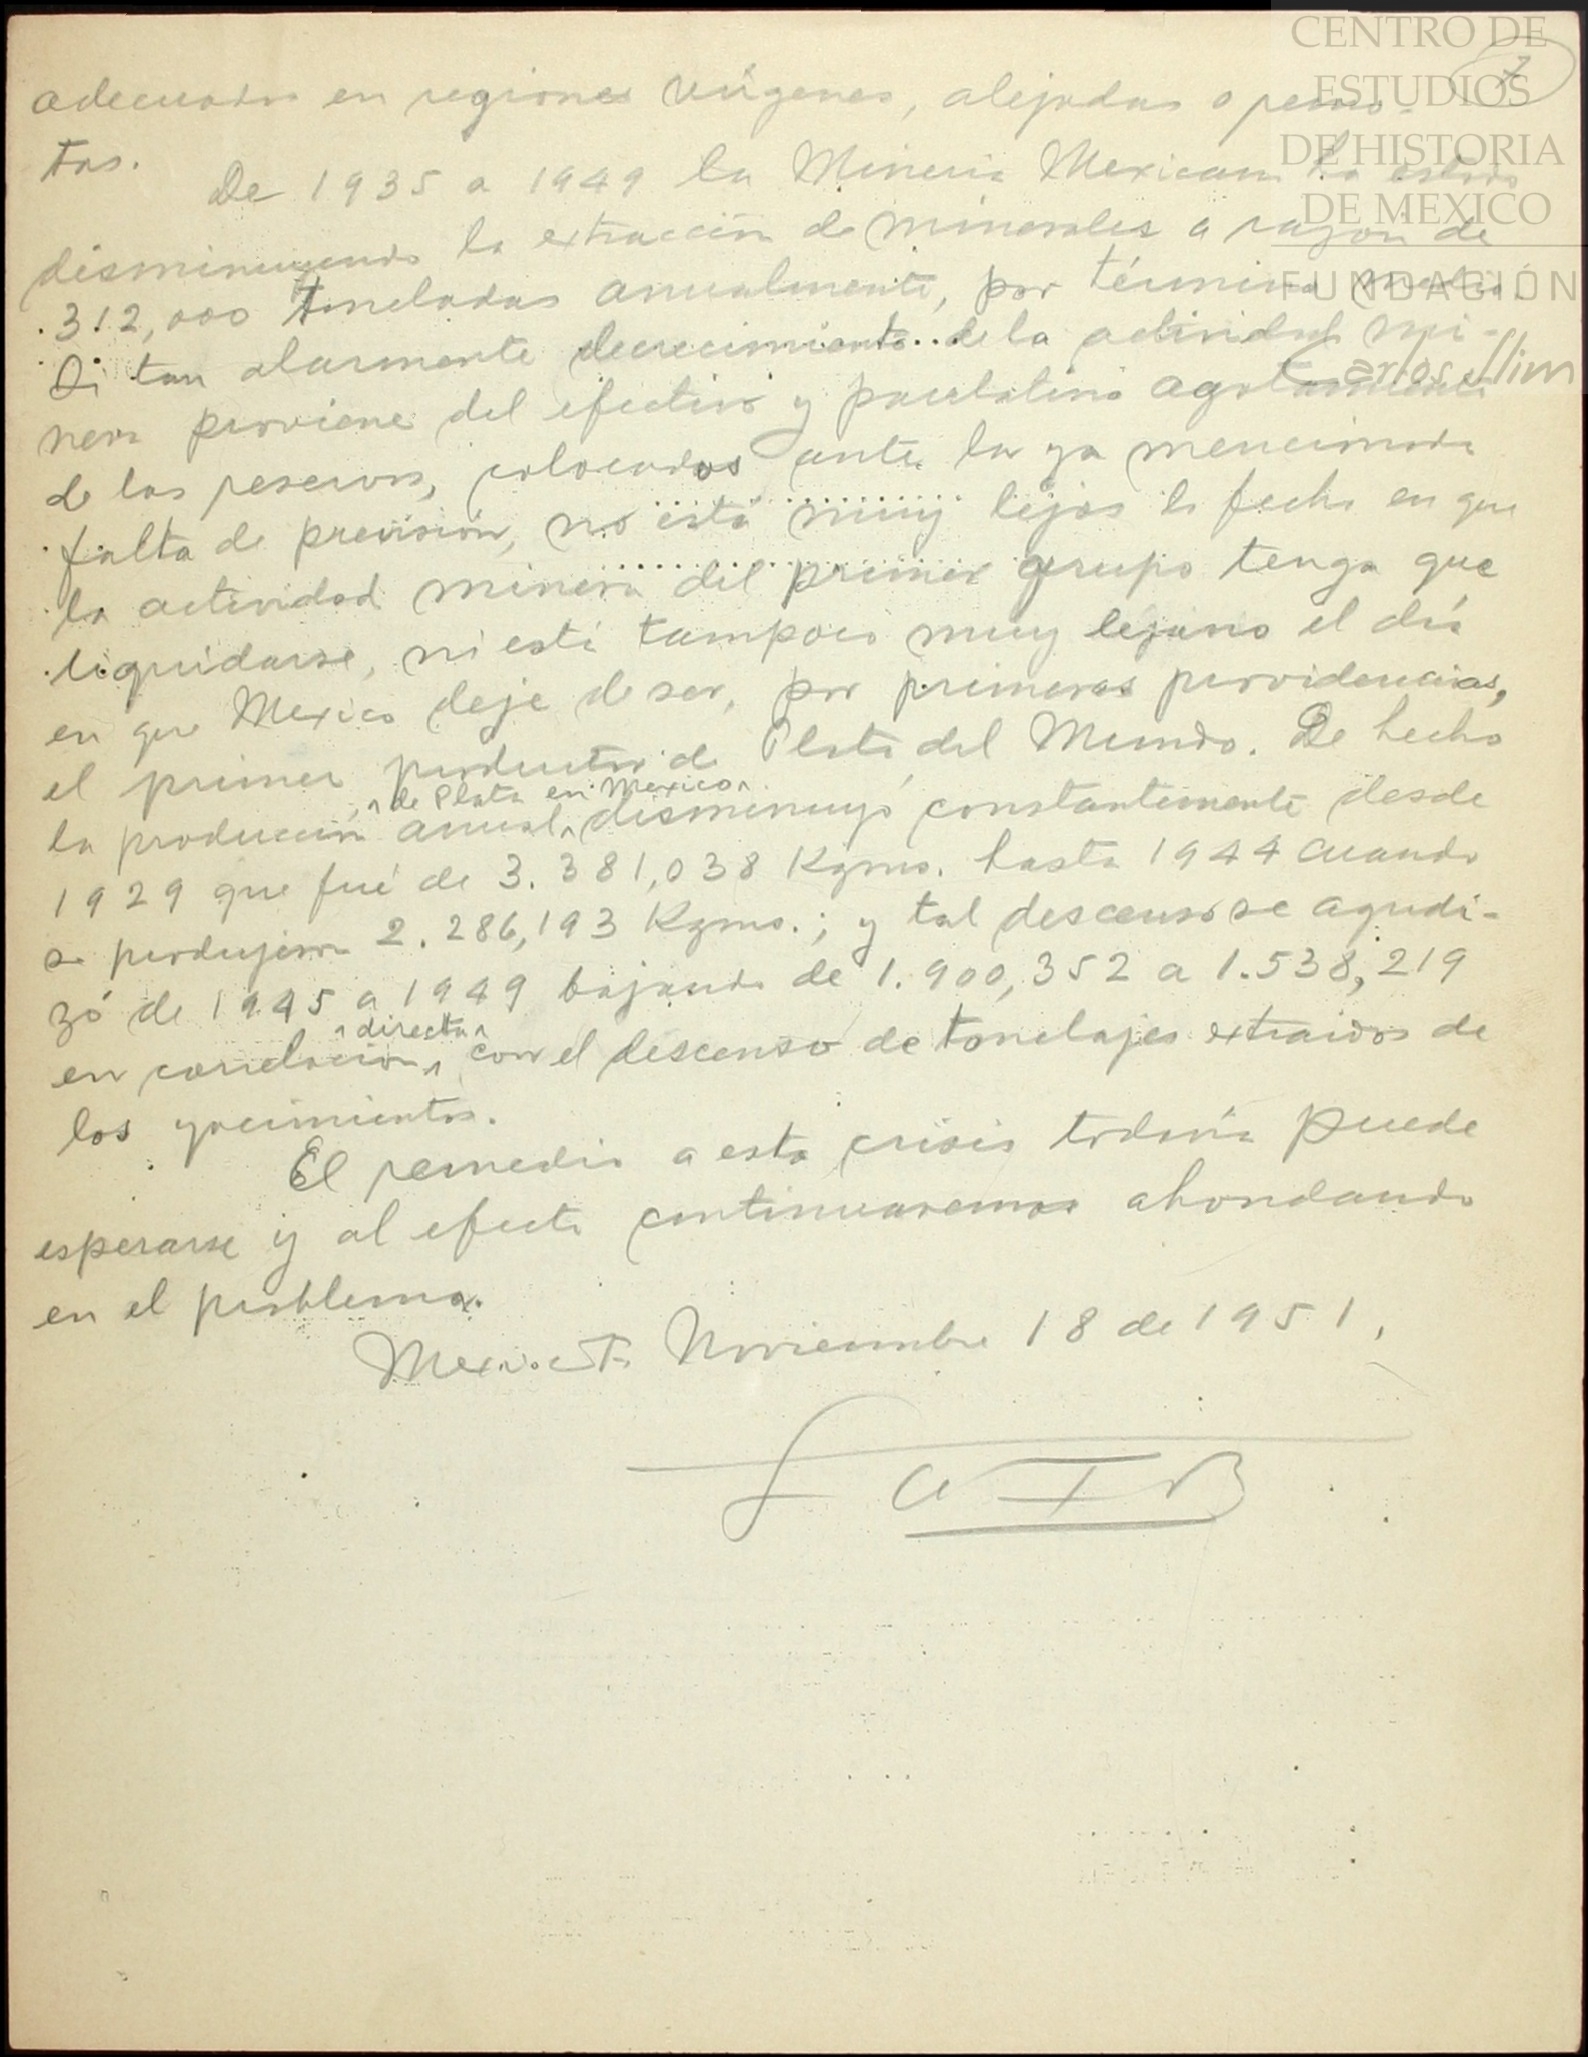 CENTRO DE
ESTUDIOS
DE HISTORIA
DE MEXICO
FUNDACIÓN
Carlos Slim
7
adecuados en regiones vírgenes, alejadas o remo-
tas.
De 1935 a 1949 la Mineria Mexicana ha estado
disminuyendo la extracción de minerales a razón de
312,000 toneladas anualmente, por término medio.
Si tan alarmante decrecimiento de la actividad mi-
nera proviene del efectivo y paulatino agotamiento
de las reservas, colocados ante la ya mencionada
falta de previsión, no está muy lejos la fecha en que
la actividad minera del primer grupo tenga que
liquidarse, ni está tampoco muy lejano el día
en que Mexico deje de ser, por primeras providencias,
el primer productor de Plata del Mundo. De hecho
la producción anual de Plata en Mexico disminuyó constantemente desde
1929 que fué de 3.381,038 Kgms. hasta 1944 cuando
se produjeron 2.286,193 Kgms.; y tal descenso se agudi-
zó de 1945 a 1949 bajando de 1.900,352 a 1.538,219
en correlación directa con el descenso de tonelajes extraidos de
los yacimientos.
El remedio a esta crisis todavía puede
esperarse y al efecto continuaremos ahondando
en el problema.
Noviembre 18 de 1951,